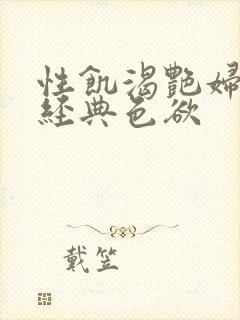 性飢渴艷婦
經典色欲
戴笠